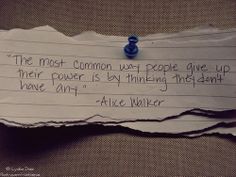 "The most common way people give up
their power is by thinking they don't
have any"
-Alice Walker